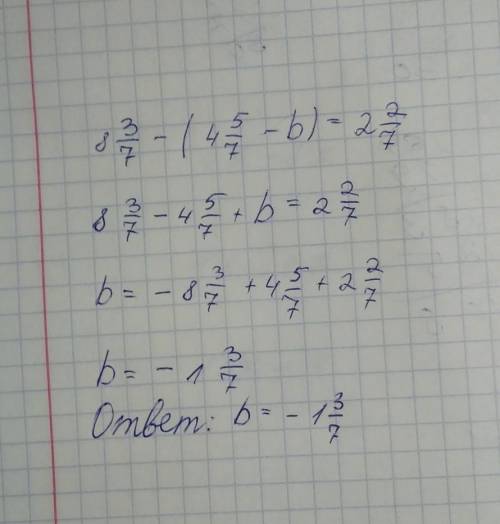 8 3/7 - (4 5/7 - b) = 2 2/7
8 3/7 - 4 5/7 + b = 2 2/7
b = - 8 3/7 + 4 5/7 + 2 2/7
b = - 1 3/7
Ответ: b = - 1 3/7